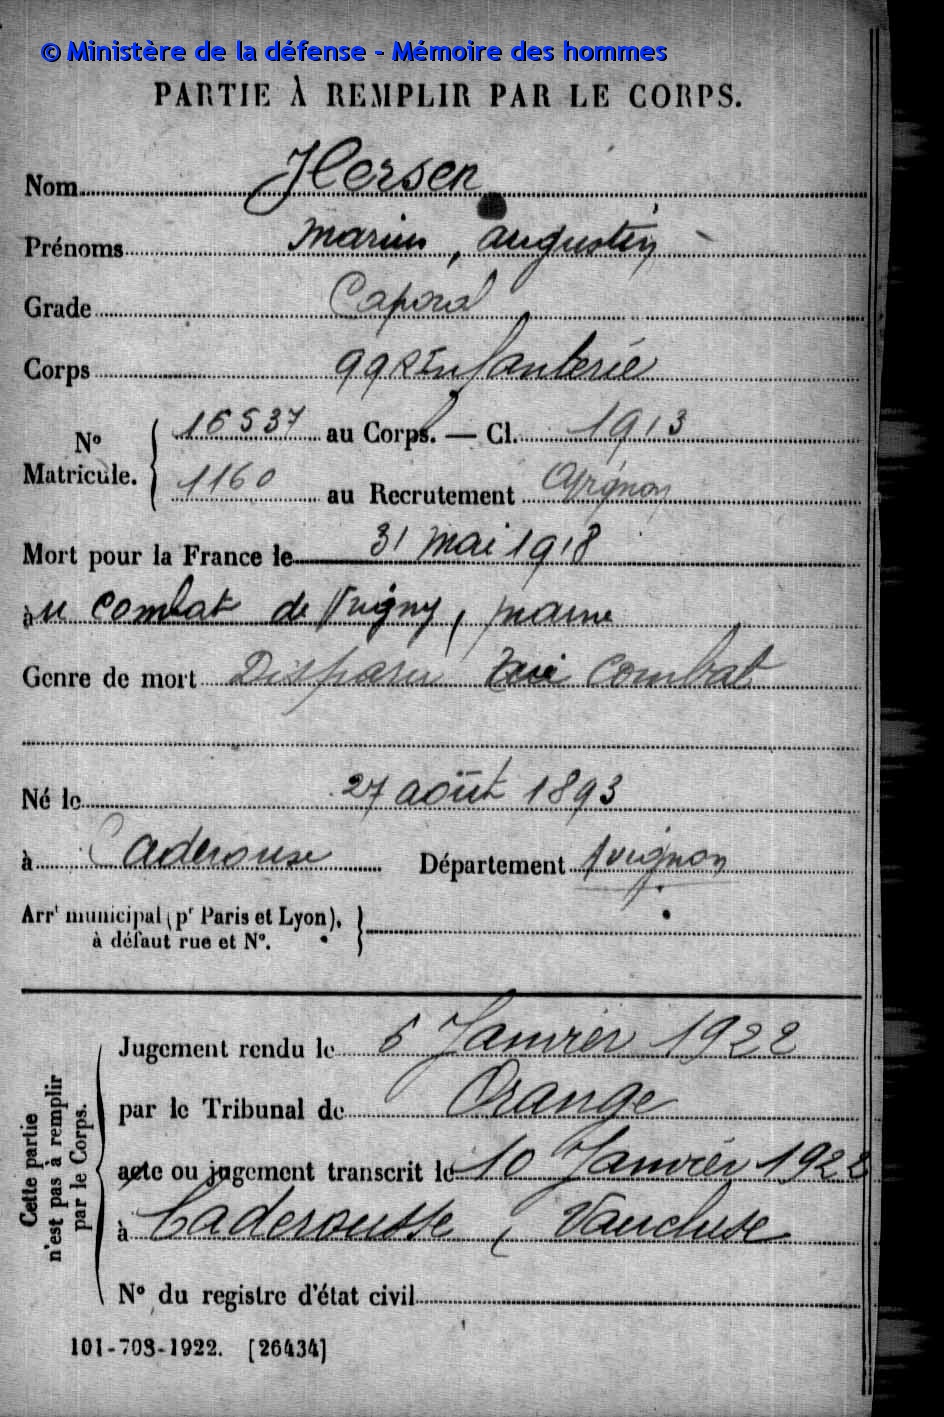 © Ministère de la défense - Mémoire des hommes
PARTIE À REMPLIR PAR LE CORPS.
Nom Hersen
Prénoms Marius, Augustin
Grade Caporal
Corps 99 R Infanterie
N° Matricule. 16537 au Corps. — Cl. 1913
1160 au Recrutement Avignon
Mort pour la France le 31 mai 1918
au combat de Vrigny, Marne
Genre de mort Disparu au combat
Né le 27 août 1893
à Caderousse Département Avignon
Arrt municipal (pr Paris et Lyon), à défaut rue et N°.
Cette partie n'est pas à remplir par le Corps.
Jugement rendu le 5 Janvier 1922
par le Tribunal de Orange
acte ou jugement transcrit le 10 Janvier 1922
à Caderousse, Vaucluse
N° du registre d'état civil
101-708-1922. [26434]